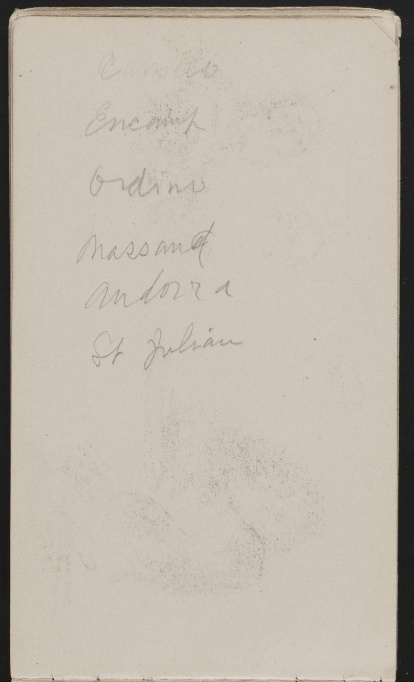 Canillo
Encamp
Ordino
Massana
Andorra
St Julian